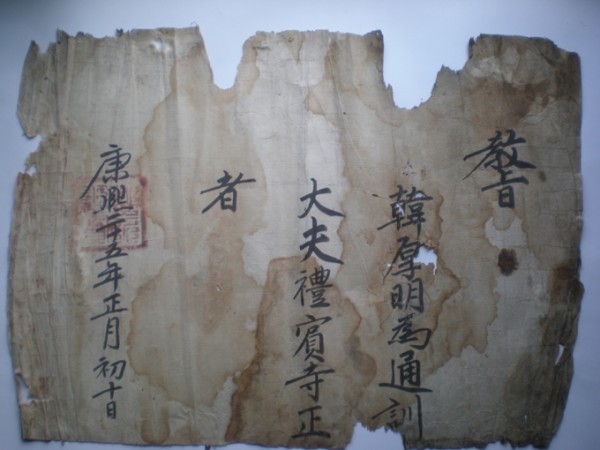 教旨
韓厚明為通訓
大夫禮賓寺正
者
康熙二十五年正月初十日